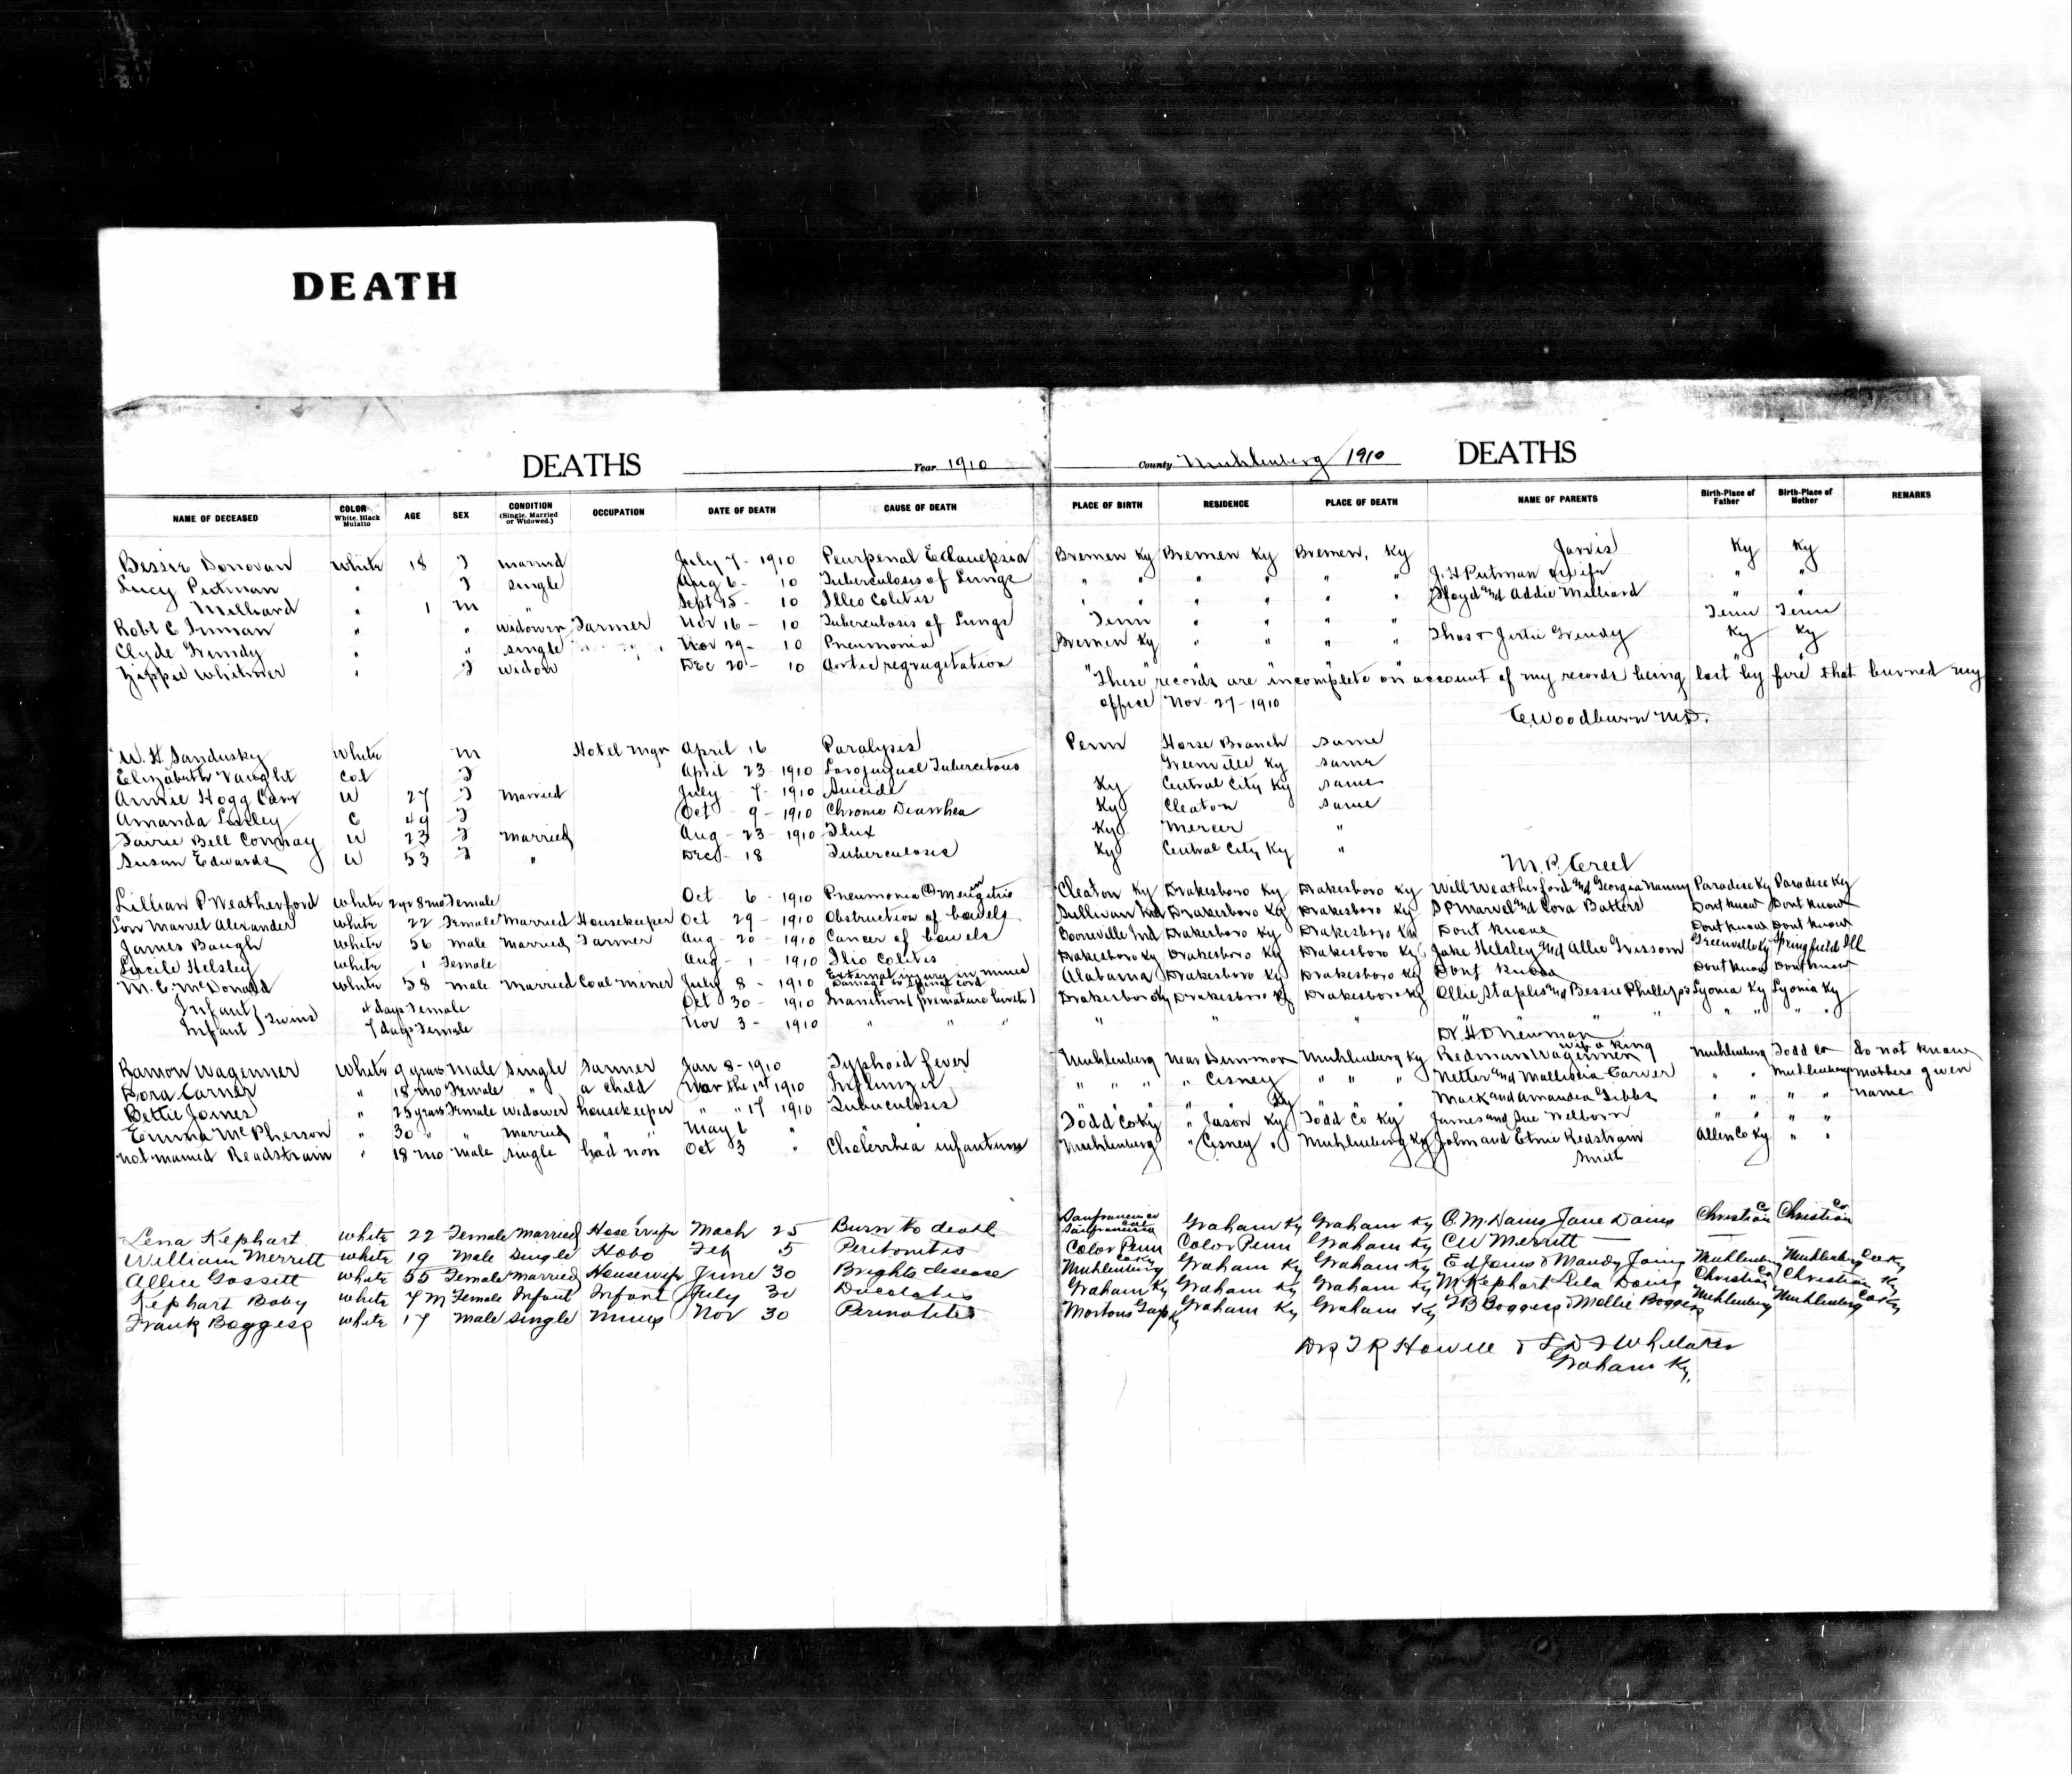 DEATH
DEATHS Year 1910 County Muhlenberg 1910 DEATHS
NAME OF DECEASED COLOR White, Black Mulatto AGE SEX CONDITION (Single, Married or Widowed.) OCCUPATION DATE OF DEATH CAUSE OF DEATH PLACE OF BIRTH RESIDENCE PLACE OF DEATH NAME OF PARENTS Birth-Place of Father Birth-Place of Mother REMARKS
Bessie Donovan White 18 F married July 7 - 1910 Bremen Ky Bremen Ky Bremen, Ky Jarvis Ky Ky
Lucy Putman " F single Aug 6 - 10 Tuberculosis of Lungs " " " " " " J. H Putman & wife " "
Milliard " 1 m " Sept 15 - 10 Illeo Colitis " " " " " Floyd and Addie Milliard " "
Robt C Inman " " widower Farmer Nov 16 - 10 Tuberculosis of Lungs Tenn " " " " Tenn Tenn
Clyde Grundy " " single Nov 29 - 10 Pneumonia Bremen Ky " " " " Thos & Gertie Grundy Ky Ky
Zippie Whitmer " F widow Dec 20 - 10 Aortic regrugitation
"These records are incomplete on account of my records being lost by fire that burned my
office Nov-27-1910
Woodburn M.D.
W. H. Sandusky White m Hotel mgr April 16 Paralysis Penn Horse Branch same
Elizabeth Vaught Col F April 23 - 1910 Greenville Ky same
Annie Hogg Carr W 27 F Married July - 7 - 1910 Suicide Ky Central City Ky same
Amanda C 49 F Oct - 9 - 1910 Chronic Diarrhea Ky Cleaton same
Bell Conway W 23 F Married Aug - 23 - 1910 Flux Ky Mercer "
Susan Edwards W 53 F " Dec - 18 Tuberculosis Ky Central City Ky "
M. P. Creel
Lillian P Weatherford White 2yr 8mo Female Oct 6 - 1910 Pneumonia Cleaton Ky Drakesboro Ky Drakesboro Ky Will Weatherford and Georgia Nanny Paradise Ky Paradise Ky
Marvel Alexander White 22 Female Married Housekeeper Oct 29 - 1910 Obstruction of bowels Sullivan Ind Drakesboro Ky Drakesboro Ky S P Marvel and Cora Batters Dont know Dont know
James Baugh White 56 Male Married Farmer Aug - 20 - 1910 Cancer of bowels Booneville Ind Drakesboro Ky Drakesboro Ky Dont know Dont know Dont know
Lucile Helsley White 1 Female Aug - 1 - 1910 Ilio Colitis Drakesboro Ky Drakesboro Ky Drakesboro Ky Jake Helsley and Allie Grissom Greenville Ky Springfield Ill
M. C. McDonald White 58 Male Married Coal miner July 8 - 1910 External injury in mines Damage to Spinal cord Alabama Drakesboro Ky Drakesboro Ky Dont know Dont know Dont know
Infant } 4 days Female Oct 30 - 1910 Inanition (premature birth) Drakesboro Ky Drakesboro Ky Drakesboro Ky Ollie Staples and Bessie Phillips Lyonia Ky Lyonia Ky
Infant } Twins 7 days Female Nov 3 - 1910 " " " " " " " " " "
Dr H D Newman
Ramon Wagenner White 9 years Male Single Farmer Jan 8 - 1910 Typhoid fever Muhlenberg Near Dunmor Muhlenberg Ky Redman Wagenner King Muhlenberg Todd Co do not know
Dora Carner " 18 mo Female " a child Mar the 1st 1910 " " " " Cisney " " " Netter and Carver " " Muhlenberg mothers given
Bettie Joines " 25 years Female widower housekeeper " " 17 1910 Tuberculosis " " Ky " Mack and Amandia Gibbs " " " " name
Emma McPherson " 30 " " married " May 6 " Todd Co Ky " Jason Ky Todd Co Ky James and Sue Welborn " " " "
not named Readstrain " 18 mo male single had non Oct 3 " Cholerrhea infantum Muhlenberg " Cisney " Muhlenberg Ky John and Etnie Redstrain Allen Co Ky " "
Smith
Lena Kephart White 22 Female Married House wife Mach 25 Burn to death Sanfrancisco Cal Graham Ky Graham Ky C. M. Davis Jane Davis Christian Co Christian Co
William Merritt White 19 Male Single Hobo Feb 5 Peritonitis Color Penn Color Penn Graham Ky C W Merritt —
Allice Gossitt White 55 Female Married Housewife June 30 Brights desease Muhlenberg Co Ky Graham Ky Graham Ky Ed Joines & Mandy Joines Muhlenberg Muhlenberg Co Ky
Kephart Baby White 7 M Female Infant Infant July 30 Graham Ky Graham Ky Graham Ky M Kephart Lula Davis Christian Co Christian Ky
Frank Boggess White 17 Male Single Mines Nov 30 Mortons Gap Ky Graham Ky Graham Ky F B Boggess & Mollie Boggess Muhlenberg Muhlenberg Co Ky
Drs T R Howell &
Graham Ky.